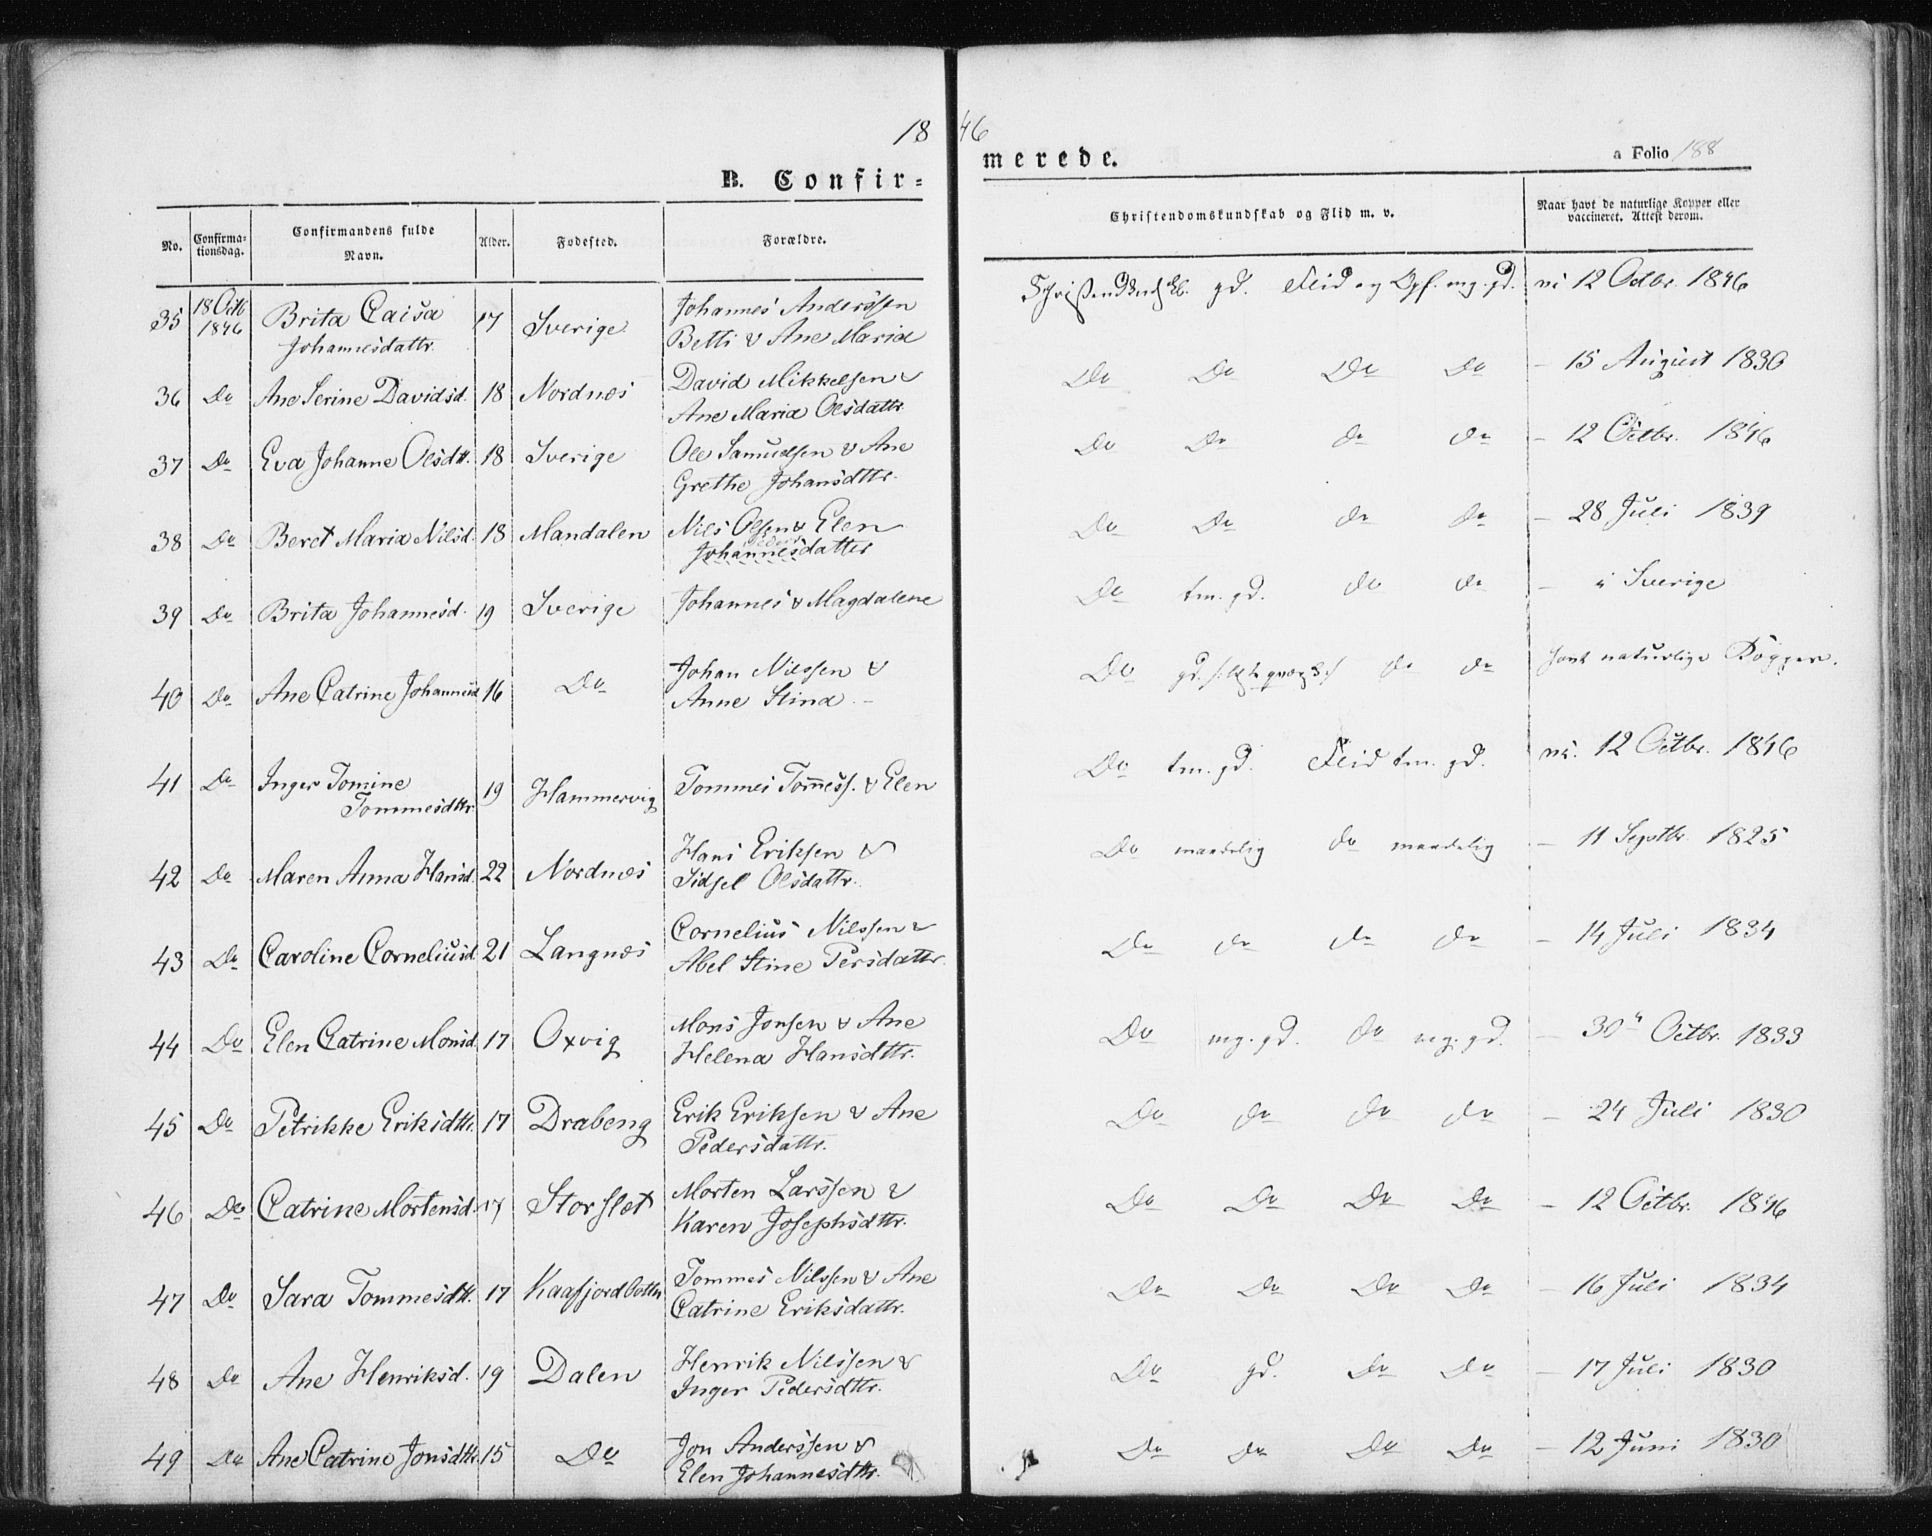 18 46
B. Confir-
merede.
a Folio 188
No.
Confirma-
tionsdag.
Confirmandens fulde
Navn.
Alder.
Fødested.
Forældre.
Christendomskundskab og Flid m. v.
Naar havt de naturlige Kopper eller
vaccineret. Attest derom.
35 18 Octb 1846 Brita Caisa Johannesdattr. 17 Sverige Johannes Anderssen Betti & Ane Maria gd. Flid og Opf. mg. gd. 12 Octbr. 1846
36 Do Ane Serine Davidsd. 18 Nordnæs David Mikkelsen & Ane Maria Olsdattr. Do Do Do Do – 15 August 1830
37 Do Eva Johanne Olsdtt. 18 Sverige Ole Samuelsen & Ane Grethe Johansdttr. Do Do do do – 12 Octbr. 1846
38 Do Beret Maria Nilsd. 18 Mandalen Nils Olsen & Elen Johannesdatter Do Do do do – 28 Juli 1839
39 Do Brita Johannesd. 19 Sverige Johannes & Magdalene Do tm. gd. do do – i Sverige
40 Do Ane Catrine Johannesd 16 Do Johan Nilssen & Anne Stina – Do gd. do do havt naturlige Kopper.
41 Do Inger Tomine Tommesdttr. 19 Hammervig Tommes Tom̅ess. & Elen Do tm. gd. Flid tm. gd. 12 Octbr. 1846
42 Do Maren Anna Hansd. 22 Nordnæs Hans Eriksen & Sidsel Olsdattr. Do maadelig do maadelig – 11 Septbr. 1825
43 Do Caroline Corneliusd. 21 Langnæs Cornelius Nilssen & Abel Stine Persdattr. Do do do do – 14 Juli 1834
44 Do Elen Catrine Monsd. 17 Oxvig Mons Jonsen & Ane Helena Hansdttr. Do mg. gd. do mg. gd. – 30 Octbr. 1833
45 Do Petrikke Eriksdttr. 17 Drabeng Erik Eriksen & Ane Pedersdattr. Do do do do – 24 Juli 1830
46 Do Catrine Mortensd. 17 Storslet Morten Larssen & Karen Josephsdttr. Do Do Do Do – 12 Octbr. 1846
47 Do Sara Tommesdtt. 17 Kaafjordbotn Tommes Nilssen & Ane Catrine Eriksdattr. Do Do Do Do – 16 Juli 1834
48 Do Ane Henriksd. 19 Dalen Henrik Nilssen & Inger Pedersdttr. Do gd. Do Do – 17 Juli 1830
49 Do Ane Catrine Jonsdttr. 15 Do Jon Anderssen & Elen Johannesdttr. Do Do Do Do – 12 Juni 1830